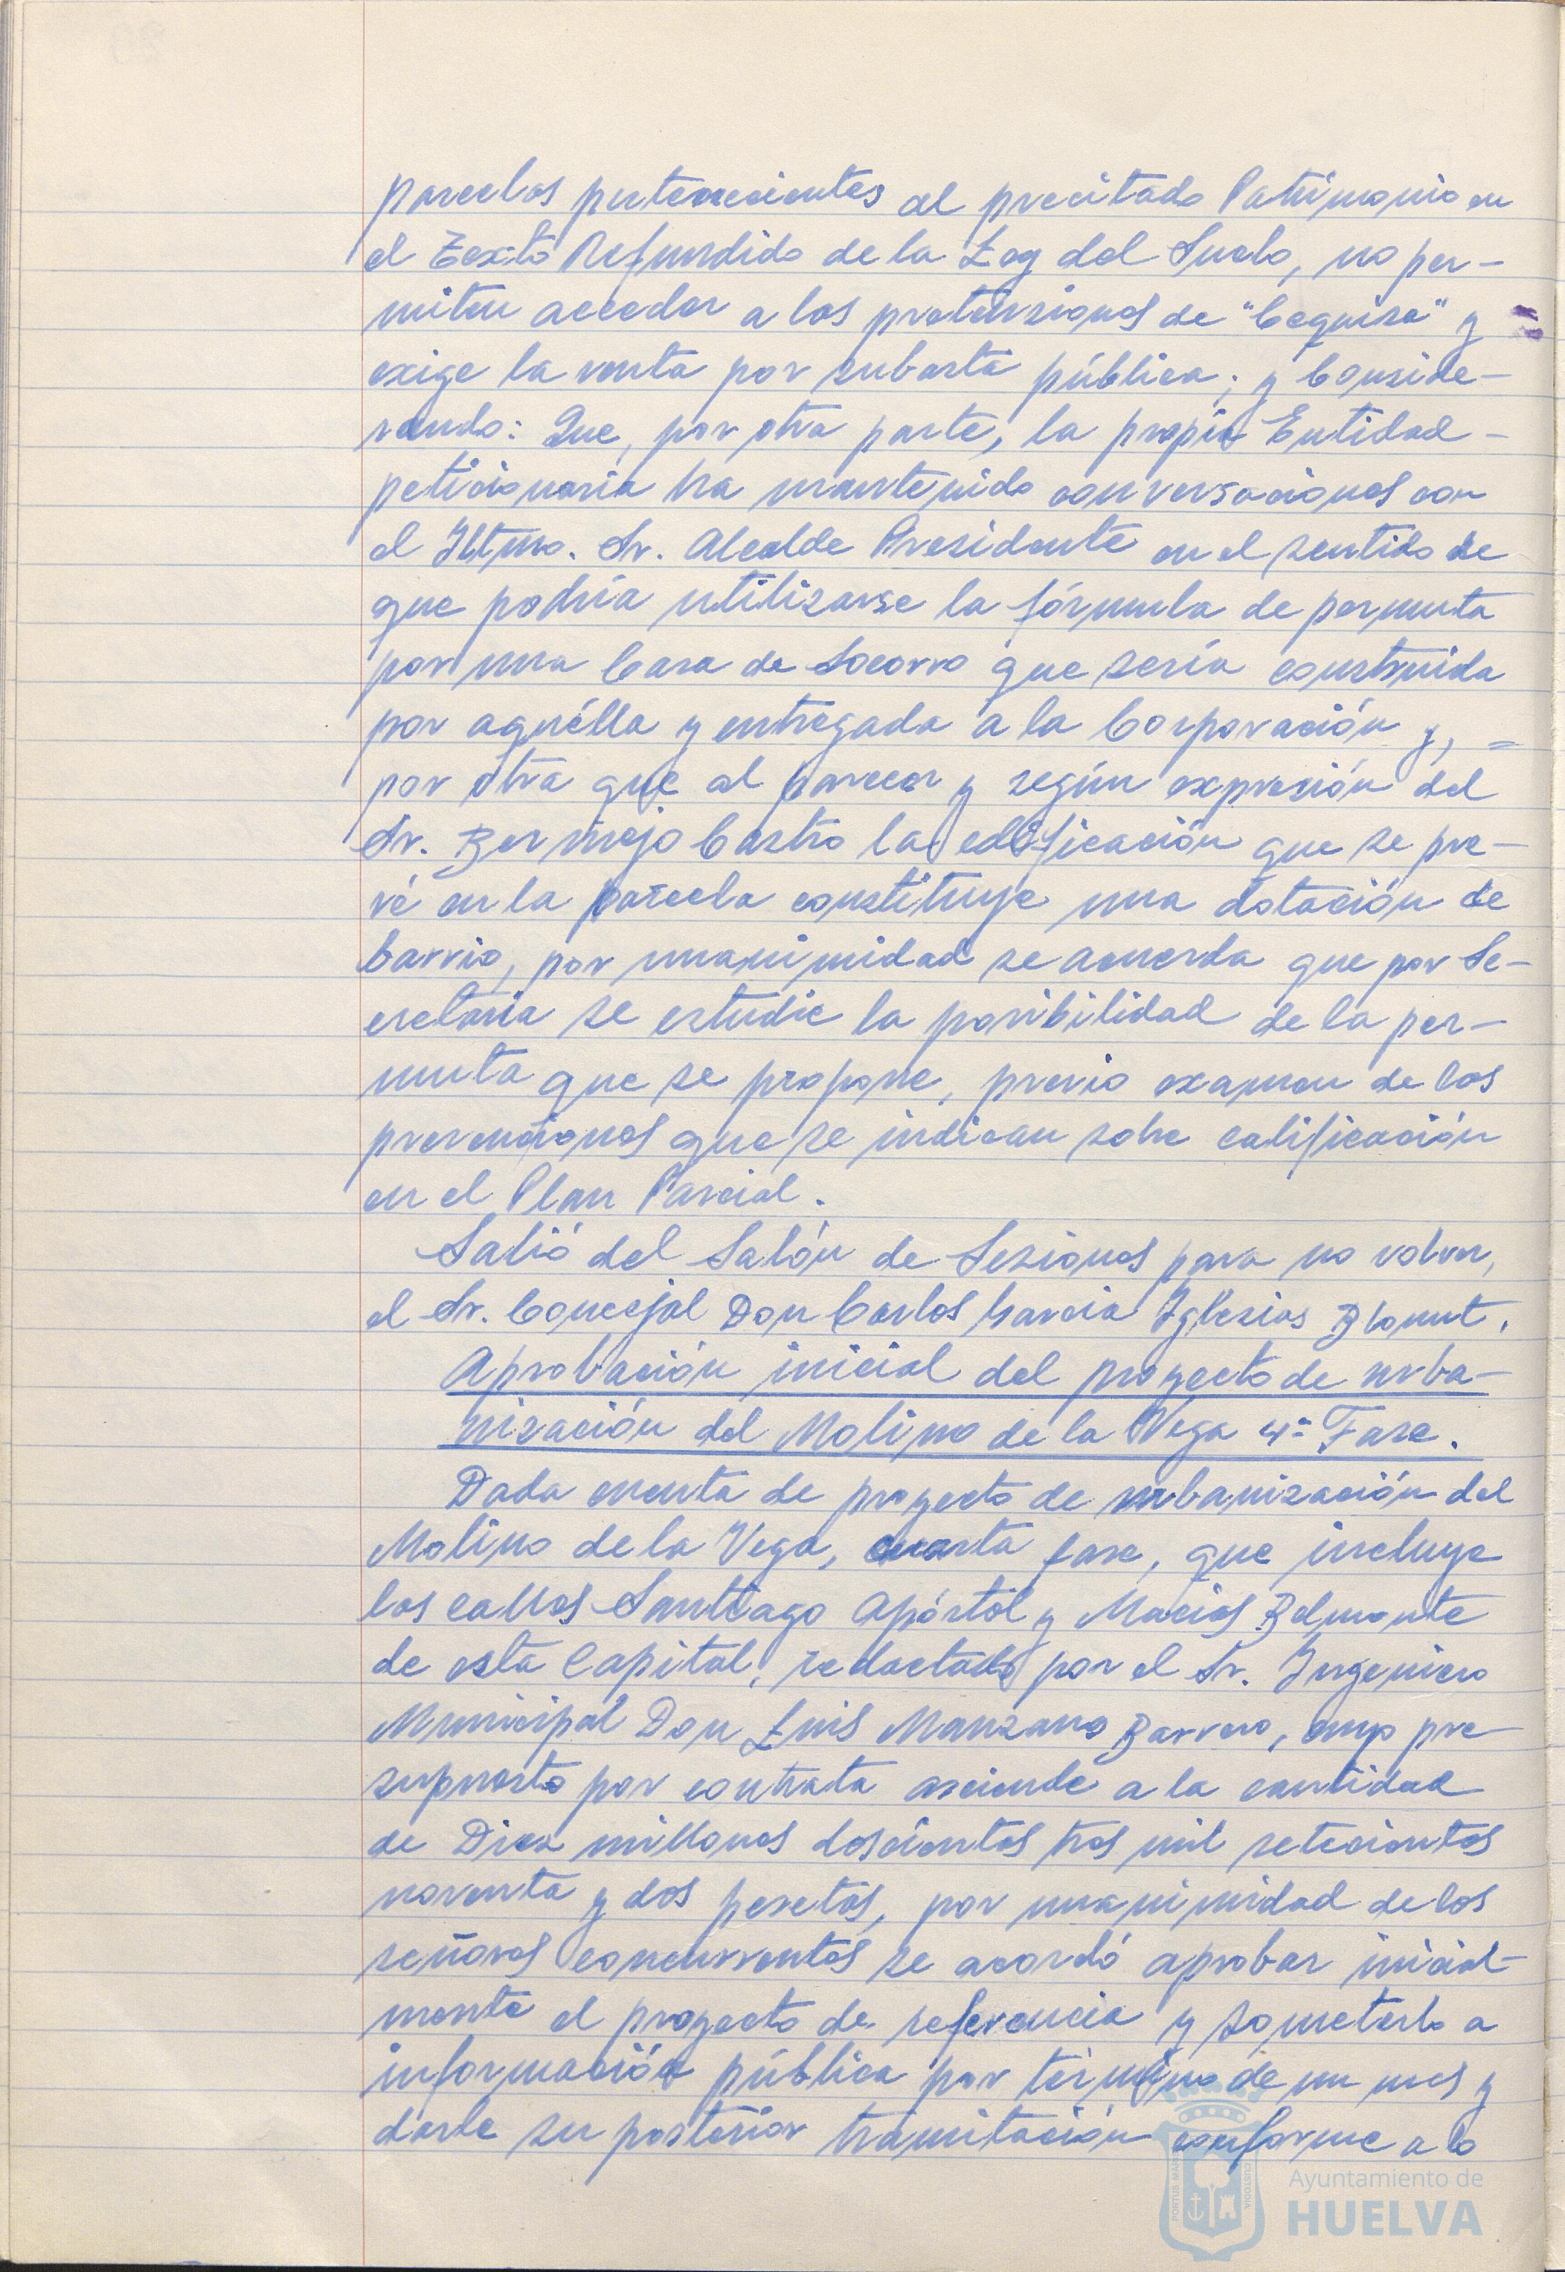 parcelas pertenecientes al precitado Patrimonio en
el Texto Refundido de la Ley del Suelo, no per-
miten acceder a las pretensiones de "Cequisa" y
exige la venta por subasta pública; y Conside-
rando: Que, por otra parte, la propia Entidad -
peticionaria ha mantenido conversaciones con
el Iltmo. Sr. Alcalde Presidente en el sentido de
que podría utilizarse la fórmula de permuta
por una Casa de Socorro que sería construida
por aquélla y entregada a la Corporación y, =
por otra que al parecer y según expresión del
Sr. Bermejo Castro la edificación que se pre-
vé en la parcela constituye una dotación de
barrio, por unanimidad se acuerda que por Se-
cretaria se estudie la posibilidad de la per-
muta que se propone, previo examen de las
prevenciones que se indican sobre calificación
en el Plan Parcial.
Salió del Salón de Sesiones para no volver,
el Sr. Concejal Don Carlos Garcia Iglesias Blomt.
Aprobación inicial del proyecto de urba-
nización del Molino de la Vega 4ª Fase.
Dada cuenta de proyecto de urbanización del
Molino de la Vega, cuarta fase, que incluye
las calles Santiago Apóstol y Macias Belmonte
de esta Capital, redactado por el Sr. Ingeniero
Municipal Don Luis Manzano Barrero, cuyo pre-
supuesto por contrata asciende a la cantidad
de Diez millones doscientas tres mil setecientas
noventa y dos pesetas, por unanimidad de los
señores concurrentes se acordó aprobar inicial-
mente el proyecto de referencia y someterlo a
información pública por término de un mes y
darle su posterior tramitación conforme a lo
PORTUS MARIS
CUSTODIA
Ayuntamiento de
HUELVA